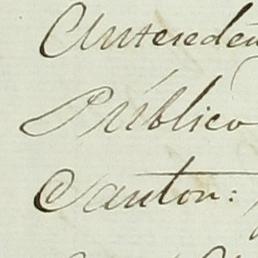 Anteceden
Público
Canton: